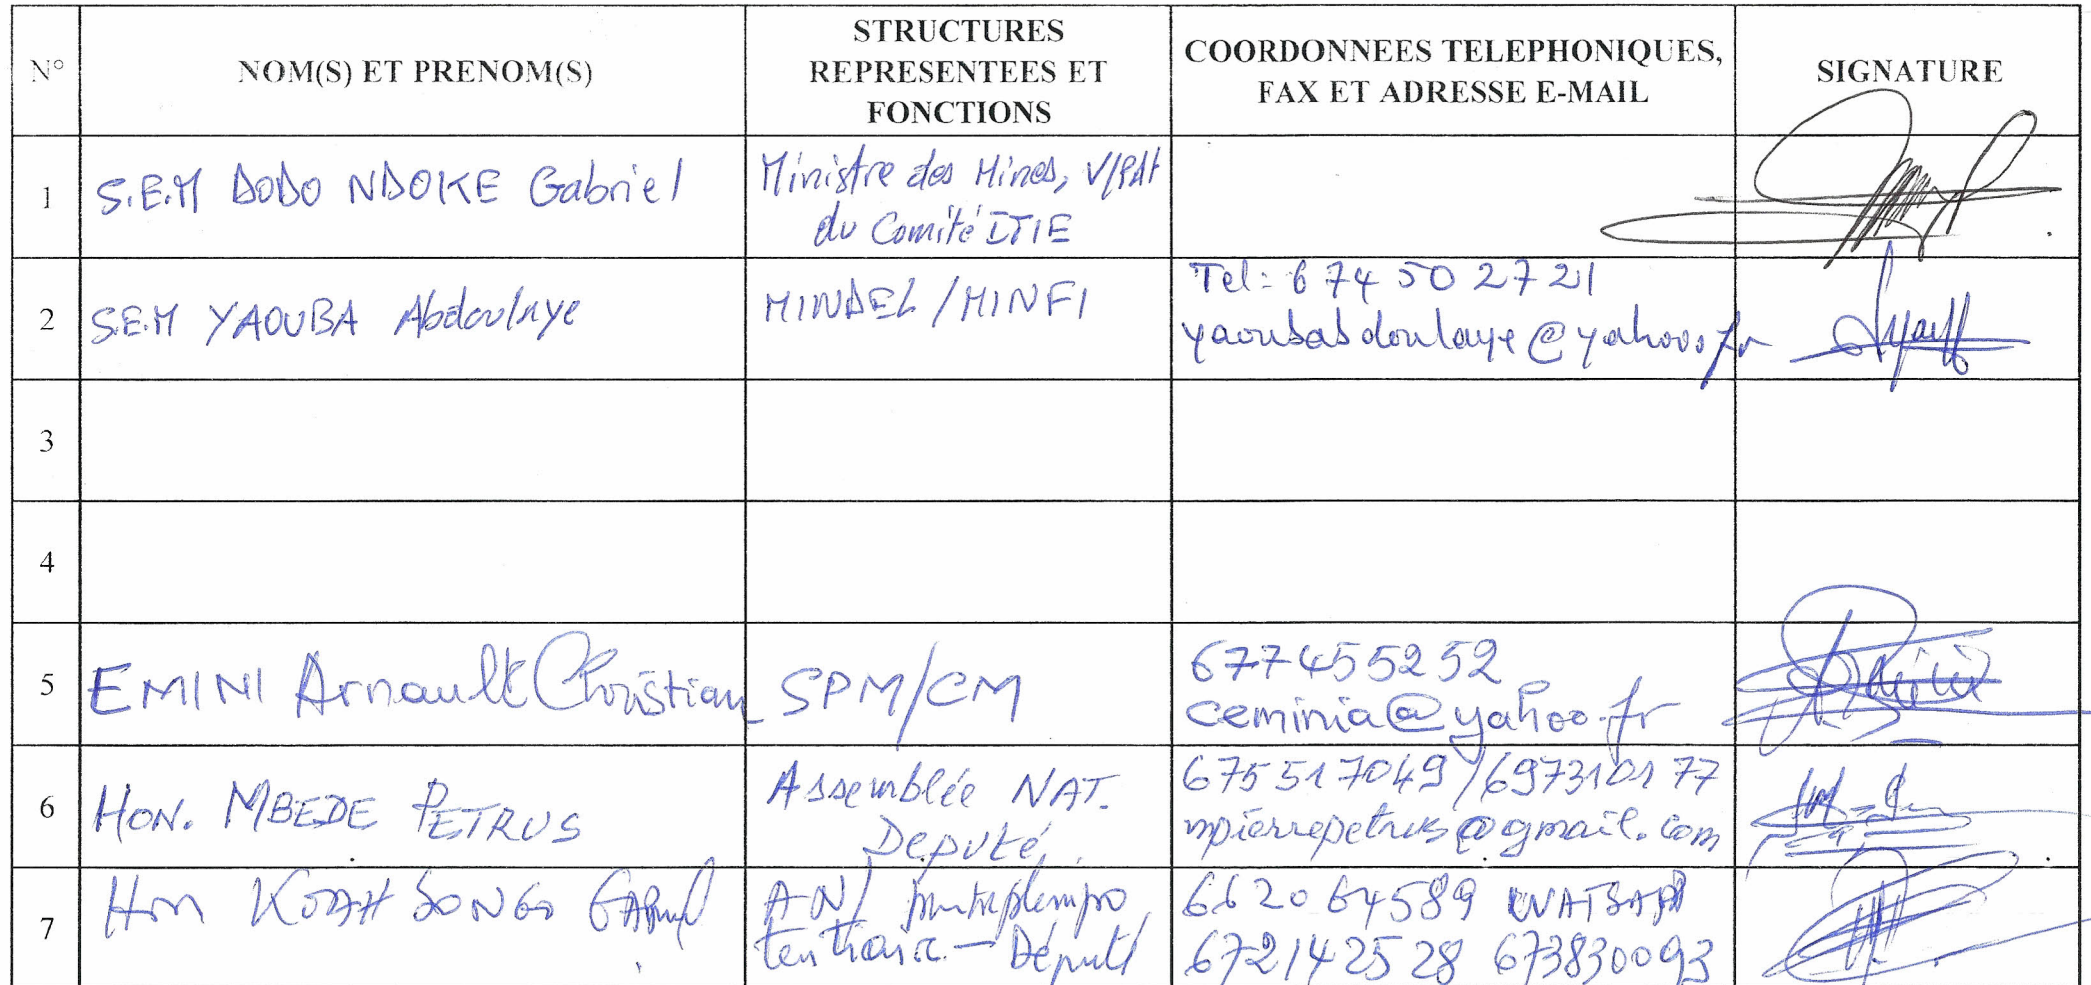 N°
NOM(S) ET PRENOM(S)
STRUCTURES
REPRESENTEES ET
FONCTIONS
COORDONNEES TELEPHONIQUES,
FAX ET ADRESSE E-MAIL
SIGNATURE
1
S.E.M DODO NDOKE Gabriel
Ministre des Mines,
du Comité ITIE
2
S.E.M YAOUBA Abdoulaye
MINDEL/MINFI
Tel: 6 74 50 27 21
yaoubabdoulaye@yahoo.fr
3
4
5
EMINI Arnault Christian
SPM/CM
677455252
ceminia@yahoo.fr
6
HON. MBEDE PETRUS
Assemblée NAT.
Deputé
675517049/697310177
mpierrepetrus@gmail.com
7
Hon KOAH SONGO
A-N/
Député
662064589 WATSAPP
672142528 673830093